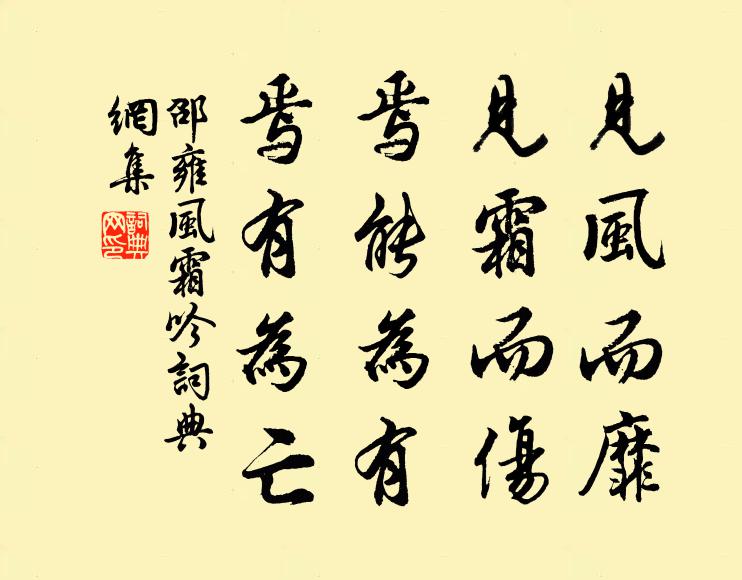 見風而靡
見霜而傷
焉能為有
焉有為亡
邵雍風霜吟詞典
網集
詞典
网印